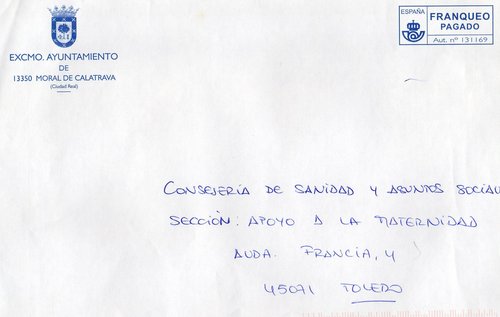 EXCMO. AYUNTAMIENTO
DE
13350 MORAL DE CALATRAVA
(Ciudad Real)
ESPAÑA
FRANQUEO
PAGADO
Aut. nº 131169
CONSEJERÍA DE SANIDAD Y ASUNTOS SOCIAL
SECCIÓN: APOYO A LA MATERNIDAD
AVDA. FRANCIA, 4
45071 TOLEDO